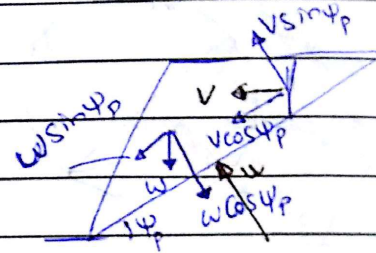 Vsinψp
V
Vcosψp
Wsinψp
W
u
Wcosψp
ψp